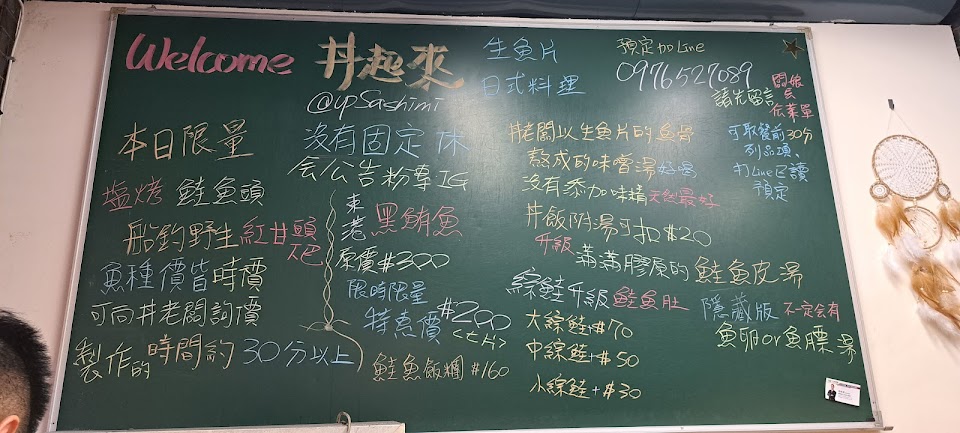 Welcome 丼起來
@upSashimi
生魚片
日式料理
預定加Line
0976527089
請先留言
闆娘
会
傳菜單
本日限量
塩烤 鮭魚頭
船釣野生紅甘頭
魚種價皆時價
可向丼老闆詢價
製作的時間約30分以上
沒有固定休
会公告粉專IG
東港黑鮪魚
原價$300
限時限量
特惠價$200
<七片>
鮭魚飯糰$160
丼老闆以生魚片的魚骨
熬成的味噌湯好喝
沒有添加味精天然最好
丼飯附湯可扣$20
升級滿滿膠原的鮭魚皮湯
綜鮭升級鮭魚肚
大綜鮭+$70
中綜鮭+$50
小綜鮭+$30
可取餐前30分
列品項、
打Line已讀
預定
隱藏版 不定会有
魚卵or魚膘湯